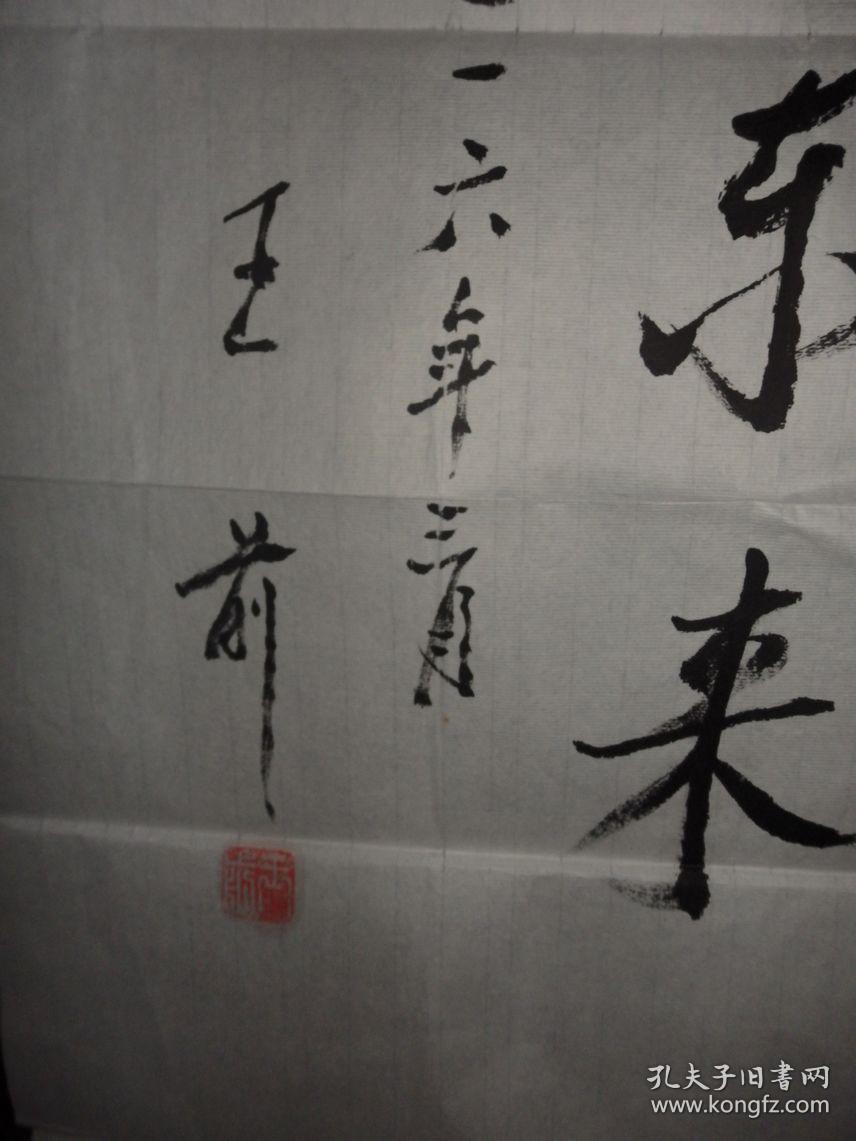 东来
一六年三月
王前
孔夫子旧书网
www.kongfz.com